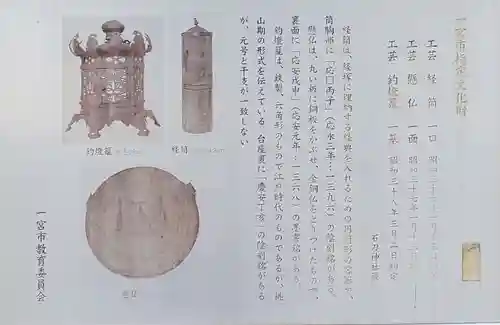 一宮市指定文化財
工芸 経筒 一口 昭和三十
工芸 懸仏 一面 昭和三十七年一月十
工芸 釣燈籠 一基 昭和三十八年三月 指定
石刀神社蔵
経筒は、経塚に埋納する経典を入れるための円筒形の容器で、
筒胴部に「応□丙子」（応永三年…一三九六）の陰刻銘がある。
懸仏は、丸い板に銅板をかぶせ、金銅仏をとりつけたもので、
裏面に「応安戊申」（応安元年…一三六八）の墨書銘がある。
釣燈籠は、鉄製、六角形のもので江戸時代のものであるが、桃
山期の形式を伝えている。台座裏に「慶安丁亥」の陰刻銘がある
が、元号と干支が一致しない
釣燈籠
経筒
懸仏
一宮市教育委員会